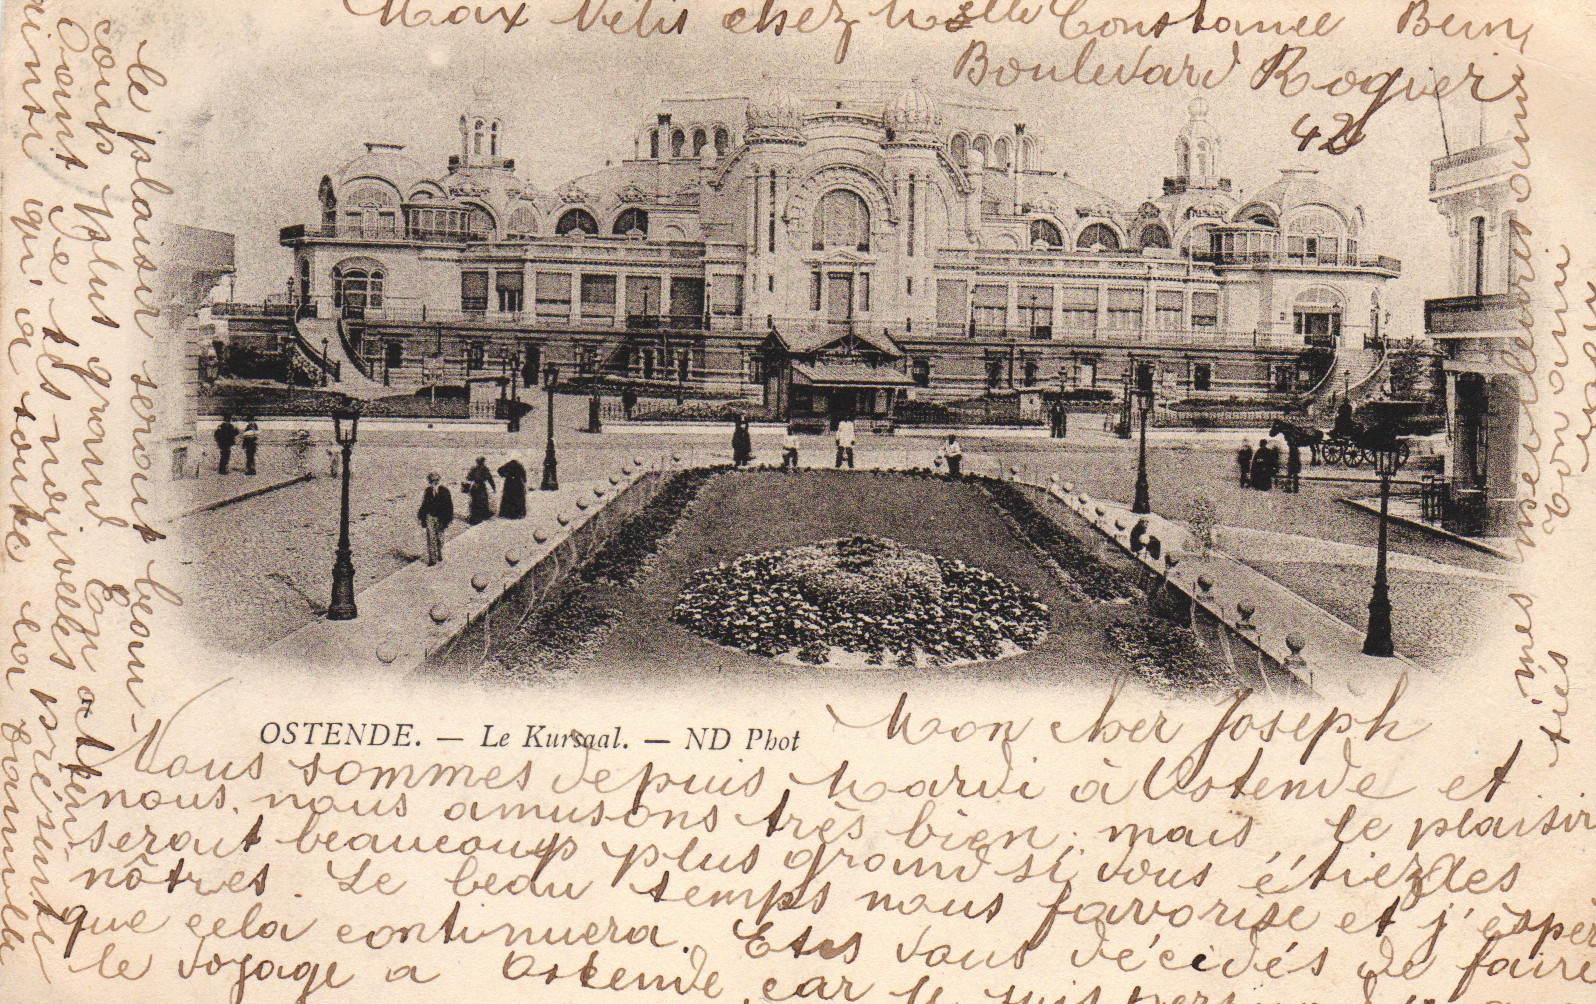 Max Vétis chez Mselle Constance
Boulevard Rogier
42
OSTENDE. — Le Kursaal. — ND Phot
Mon cher Joseph
Nous sommes depuis Mardi à Ostende et
nous nous amusons très bien, mais le plaisir
serait beaucoup plus grand si vous étiez des
nôtres. Le beau temps nous favorise et j'éspère
que cela continuera. Etes vous décidés de faire
le voyage a Ostende car le
le plaisir serait beau-
coup plus grand. En atten-
dant de tes nouvelles
ainsi qu'a toute la
famille